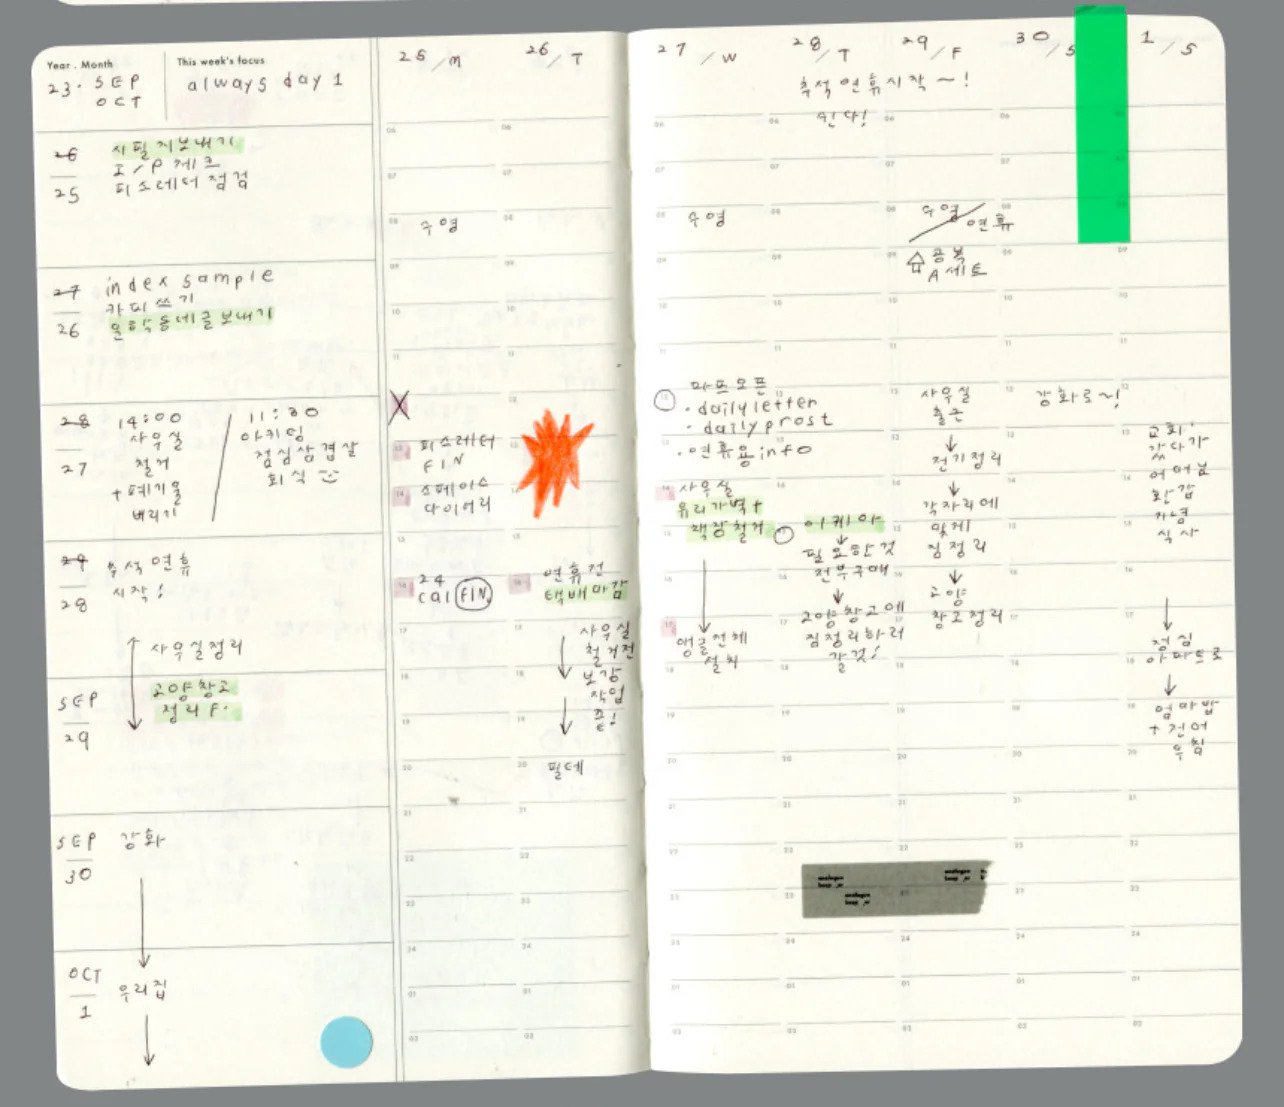 Year . Month
This week's focus
23. SEP
OCT
always day 1
26
25
시필지보내기
I/P 체크
피스레터 점검
27
26
index sample
카피 쓰기
글보내기
28
27
14:00
사무실
철거
+ 폐기물
버리기
11:30
아키밍
점심삼겹살
회식
29
28
추석 연휴
시작!
사무실정리
SEP
29
고양창고
정리 F.
SEP
30
강화
OCT
1
우리집
25 / M
수영
피스레터
FIN
스페이스
다이어리
24
cal FIN
26 / T
연휴전
택배마감
사무실
철거전
보강
작업
필테
27 / W
수영
마프오픈
· daily letter
· daily prost
· 연휴용 info
사무실
유리가벽+
책장철거
앵글전체
설치
28 / T
추석연휴시작~!
쉰다!
이케아
필요한것
전부구매
고양창고에
짐정리하러
갈것!
29 / F
수영
연휴
공복
A세트
사무실
출근
전기정리
각자리에
맞게
짐정리
고양
창고정리
30 / S
강화로~!
1 / S
교회
갔다가
어머님
환갑
기념
식사
점심
이마트로
엄마밥
+ 전어
무침